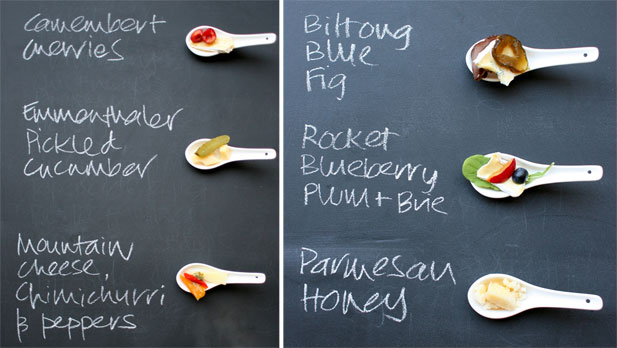 Camembert
cherries
Emmenthaler
Pickled
Cucumber
Mountain
cheese,
Chimichurri
& peppers
Biltong
Blue
Fig
Rocket
Blueberry
Plum + Brie
Parmesan
Honey